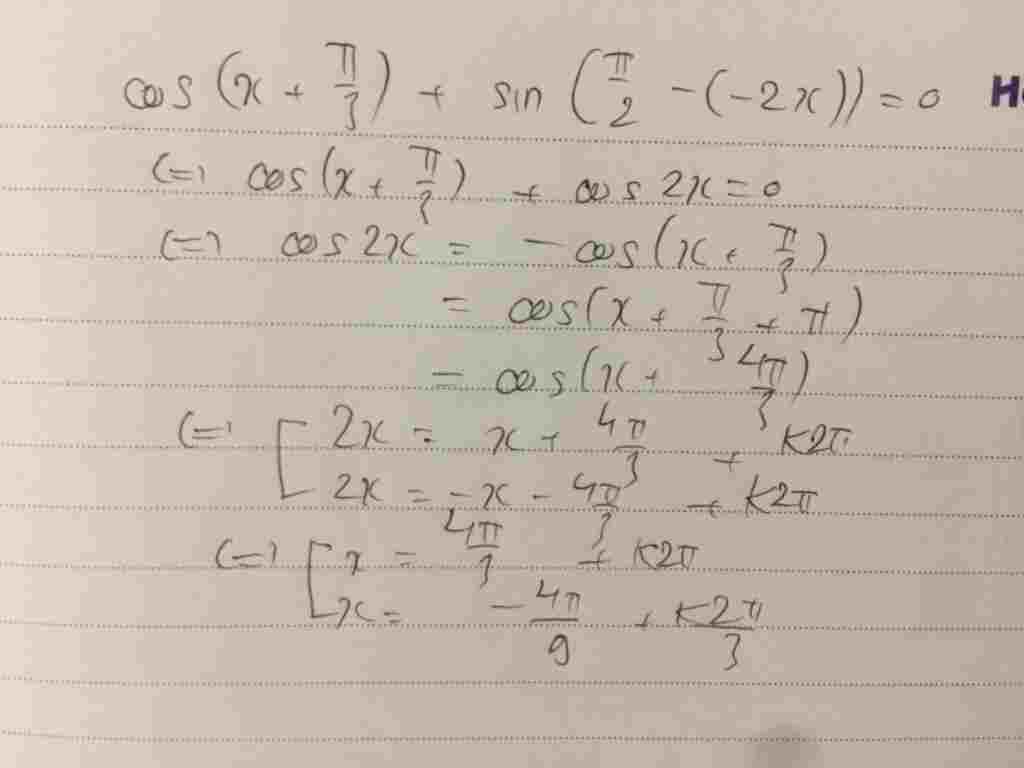 cos(x + π/3) + sin(π/2 - (-2x)) = 0 H
(=) cos(x + π/3) + cos 2x = 0
(=) cos 2x = - cos(x + π/3)
= cos(x + π/3 + π)
= cos(x + 4π/3)
(=) [ 2x = x + 4π/3 + k2π
2x = -x - 4π/3 + k2π
(=) [ x = 4π/3 + k2π
x = - 4π/9 + k2π/3